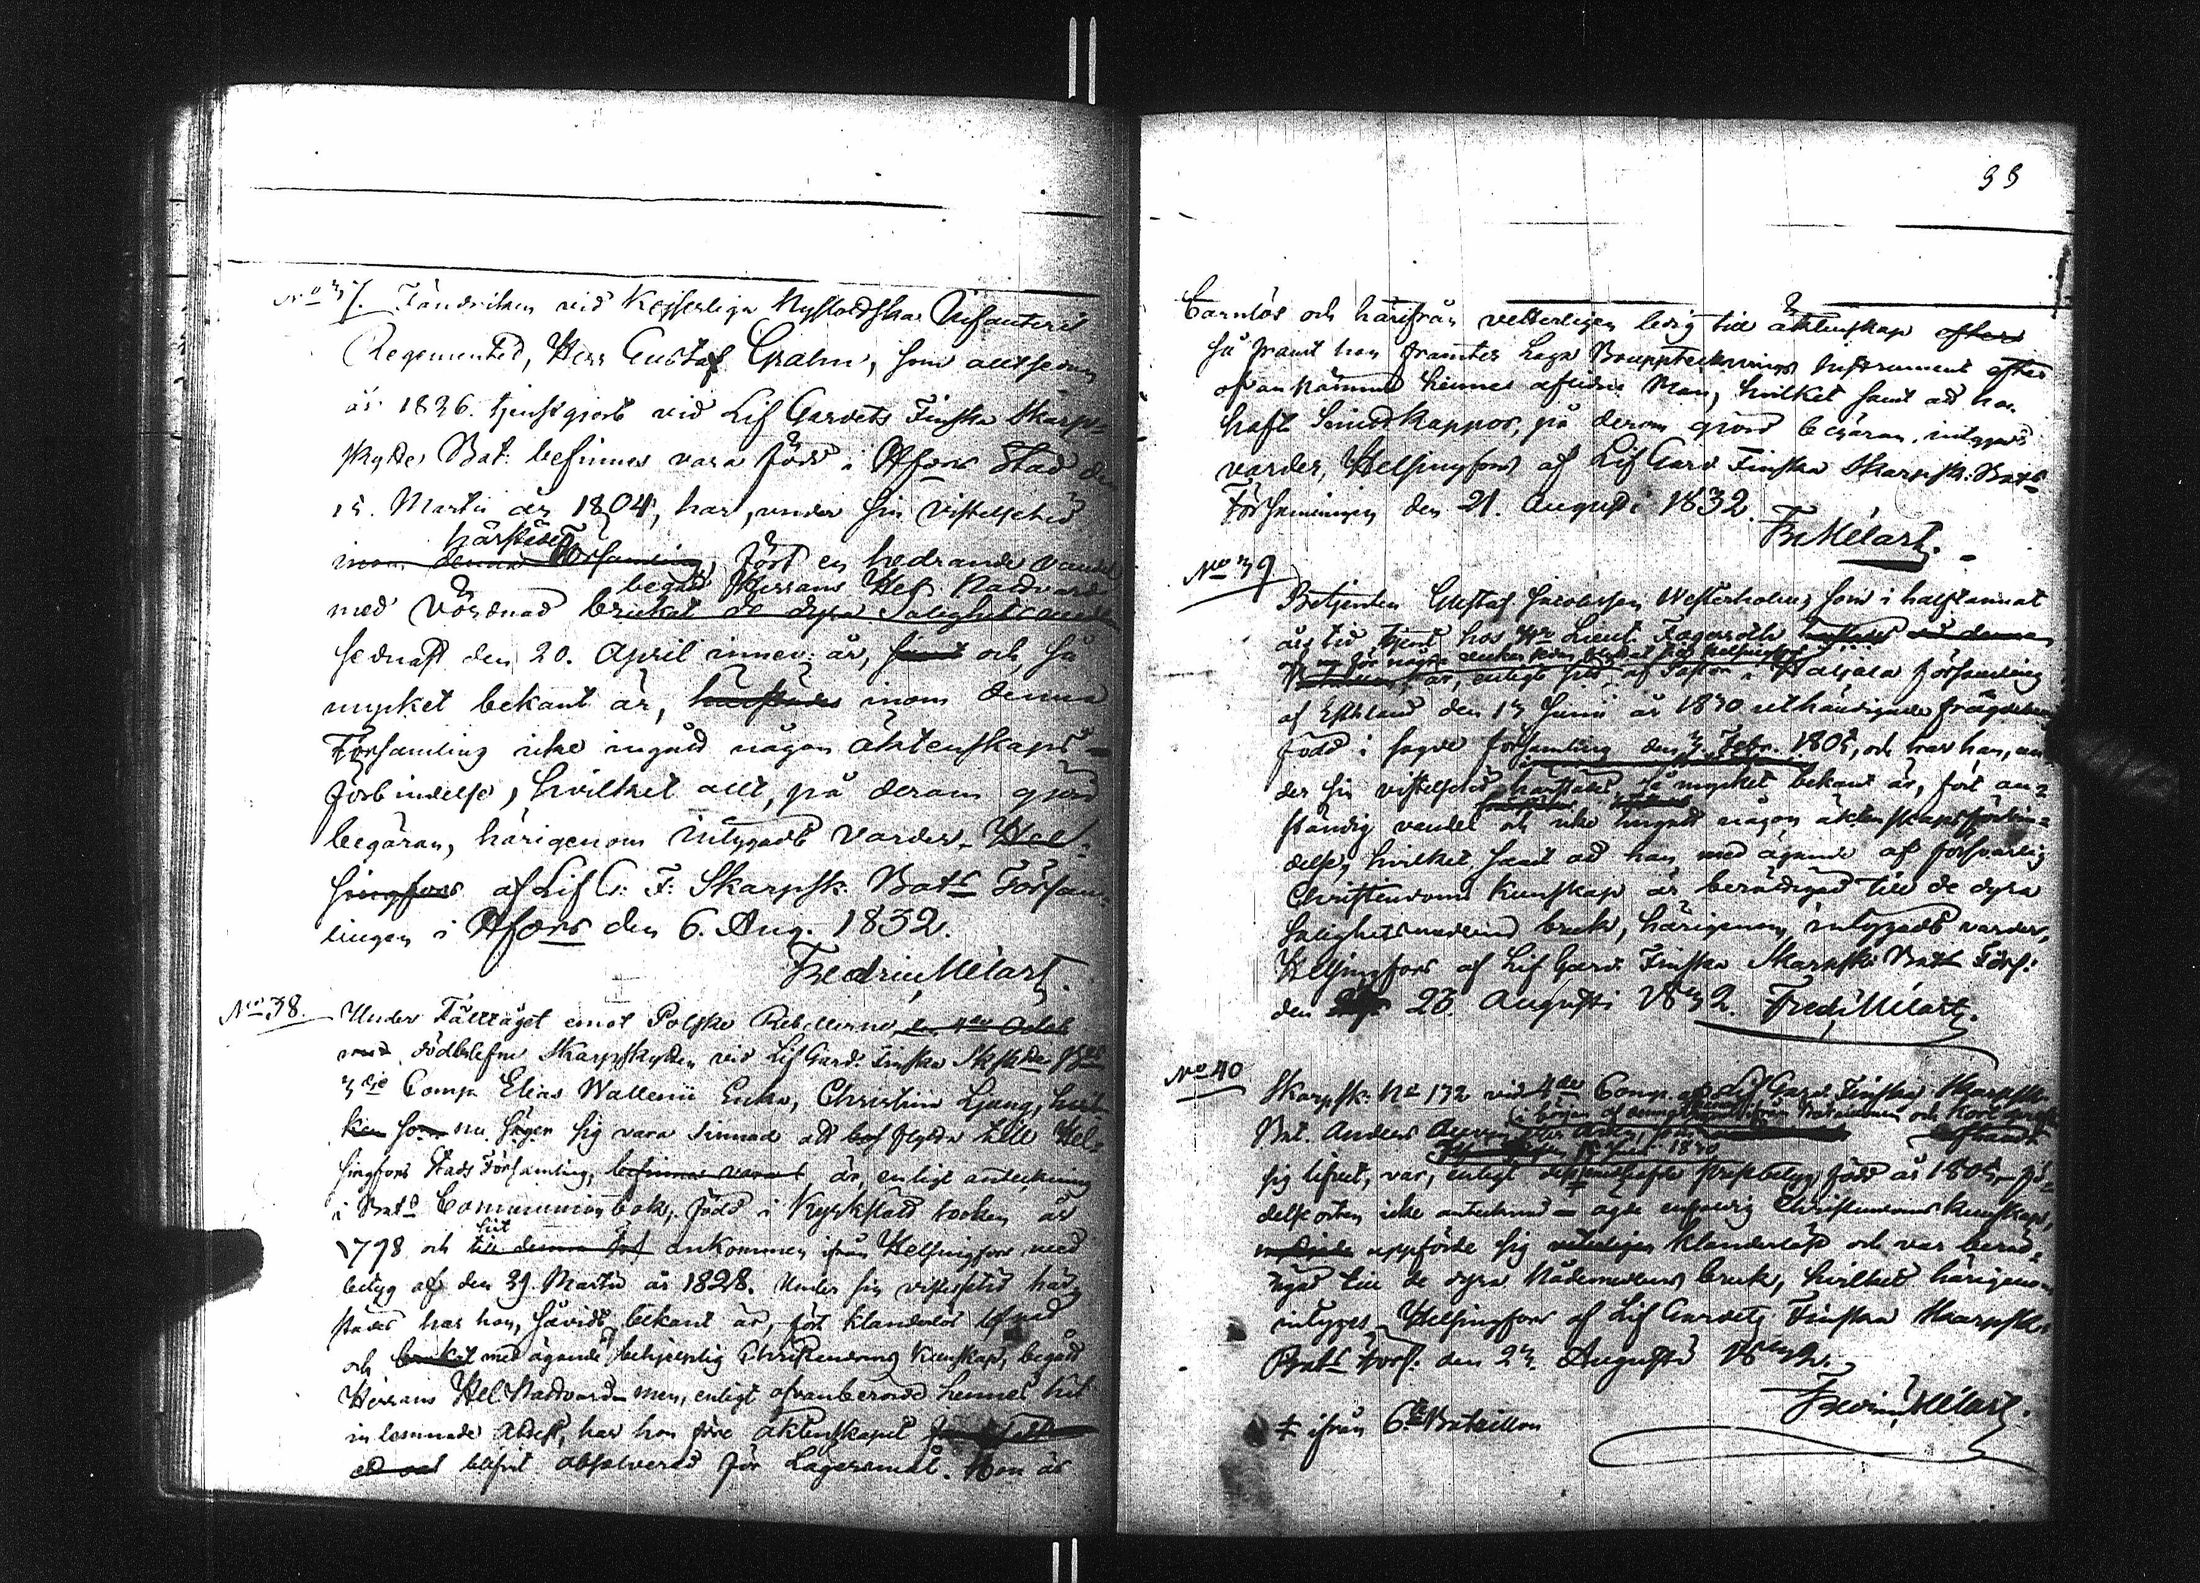 No 37. Fändriken vid Kejserliga Nyslottska Infanterie
Regementet, Herr Gustaf Grahn, som allt sedan
år 1826. tjenstgjort vid Lif Gardets Finska Skarp-
skytte Bat: befinnes vara född i Hfors Stad den
15. Martii år 1804, har, under sin vistelsetid
härstädes
inom denna Församling, fört en hedrande vandel
begått Herrans Hel. Nattvard
med vördnad brukat de dyra Salighets
sednast den 20. April innev: år, samt och, så
mycket bekant är, härstädes inom denna
Församling icke ingått någon äktenskaps-
förbindelse, hvilket allt, på derom gjord
begäran, härigenom intygadt varder. Hel-
singfors af Lif G: F: Skarpsk: Bats Försam-
lingen i Hfors den 6. Aug. 1832.
Fredric Mélart.
No 38. Under Fälttåget emot Polske Rebellerne
med. dödblefne Skarpskytten vid Lif Gard: Finska
3dje Comp. Elias Wallenii Enka, Christina Ljung, hvil-
ken som nu säger sig vara sinnad att flytta till Hel-
singfors Stads Församling, befinnes vara är, enligt anteckning
i Bats Communionbok, född i Kyrkslätt socken år
hit
1798 och till denna ankommen ifrån Helsingfors med
betyg af den 29. Martii år 1828. Under sin vistelsetid här-
städes har hon, såvidt bekant är, fört klanderlös lefnad
och brukat med ägande behjelplig Christendoms kunskap, begått
Herrans Hel. Nattvard men, enligt ofvanberörde hennes hit
inlemnade Attest, har hon före äktenskapet
blifvit absolverad för Lägersmål. Hon är
33
barnlös och härifrån vetterligen ledig till äktenskap efter
så framt hon framter laga Boupptecknings Instrument efter
ofvannämnde hennes aflidne Man, hvilket samt att hon
haft Smittkoppor, på derom gjord begäran, intygadt
varder, Helsingfors af Lif Gard. Finska Skarpsk: Bats
Församlingen den 21. Augusti 1832.
Fr. Mélart.
No 39
Betjenten Gustaf Jacobsson Westerholm, som i halftannat
års tid tjent hos Hr Lieut. Fagerroth
är, enligt af Pastor i Haljala församling
af Esthland den 13 Junii år 1830 uthändigade
född i sagde församling den 3. Febr. 1805, och har han, un-
der sin vistelsetid härstädes så mycket bekant är, fört an-
ständig vandel och icke ingått någon äktenskapsförbin-
delse, hvilket samt att han, med ägande af försvarlig
Christendoms kunskap är berättigad till de dyra
Salighetsmedlens bruk, härigenom intygadt varder,
Helsingfors af Lif Gard: Finska Skarpsk: Bats Förs:
den 23. Augusti 1832. Fredr. Mélart.
No 40
Skarpsk: No 132 vid 4de Comp. af Lif Gard: Finska Skarpsk.
Bat. Anders
sig lifvet, var, enligt född år 1805, fö-
delseorten icke antecknad – ägde Christendoms kunskap,
uppförde sig klanderlöst och var berät-
tigad till de dyra Nådemedlens bruk, hvilket härigenom
intygas, Helsingfors af Lif Gardets Finska Skarpsk.
Bats Förs: den 23. Augusti 1832.
Fredric Mélart.
‡ ifrån 6te Bataillon